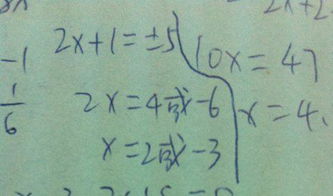 2x+2
-1
1/6
2x+1=±5
2x=4或-6
x=2或-3
10x=47
x=4.